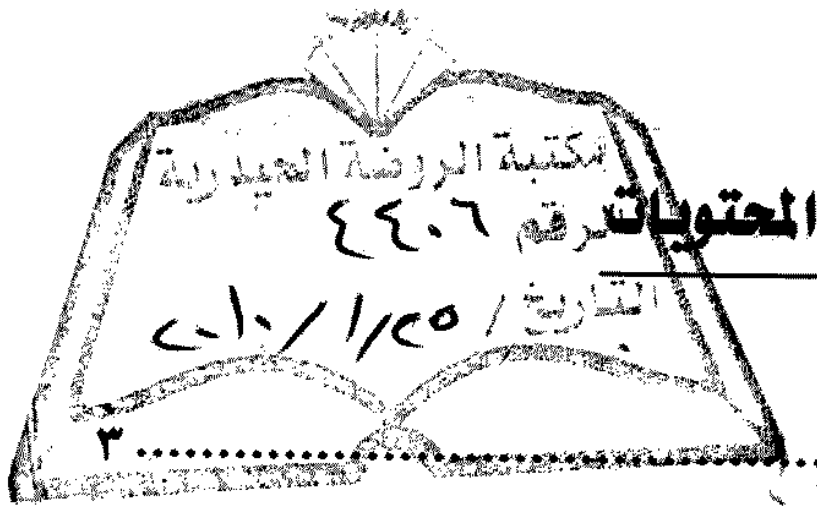 مكتبة الروضة الحيدرية
المحتويات
رقم ٤٤٠٦
التاريخ / ٢٥/١/٢٠١٠
٣ ..............................